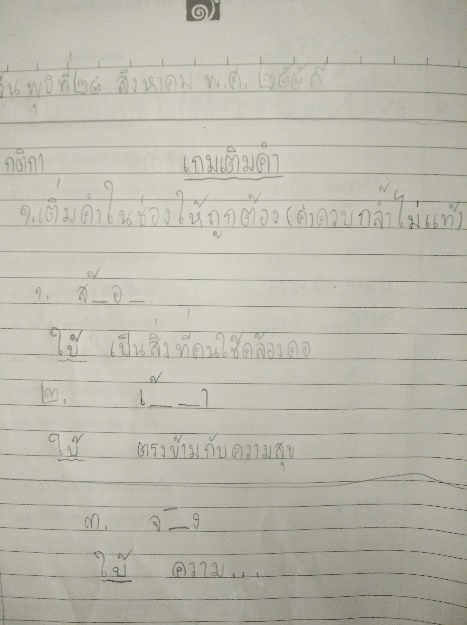 ๑
วันพุธที่๒๔ สิงหาคม พ.ศ. ๒๕๕๙
กติกา เกมเติมคำ
๑.เติมคำในช่องให้ถูกต้อง(คำควบกล้ำไม่แท้)
๑. ส้_อ_
ใบ้ เป็นสิ่งที่คนใช้คล้องคอ
๒. เ_้_า
ใบ้ ตรงข้ามกับความสุข
๓. จ_ิง
ใบ้ ความ...